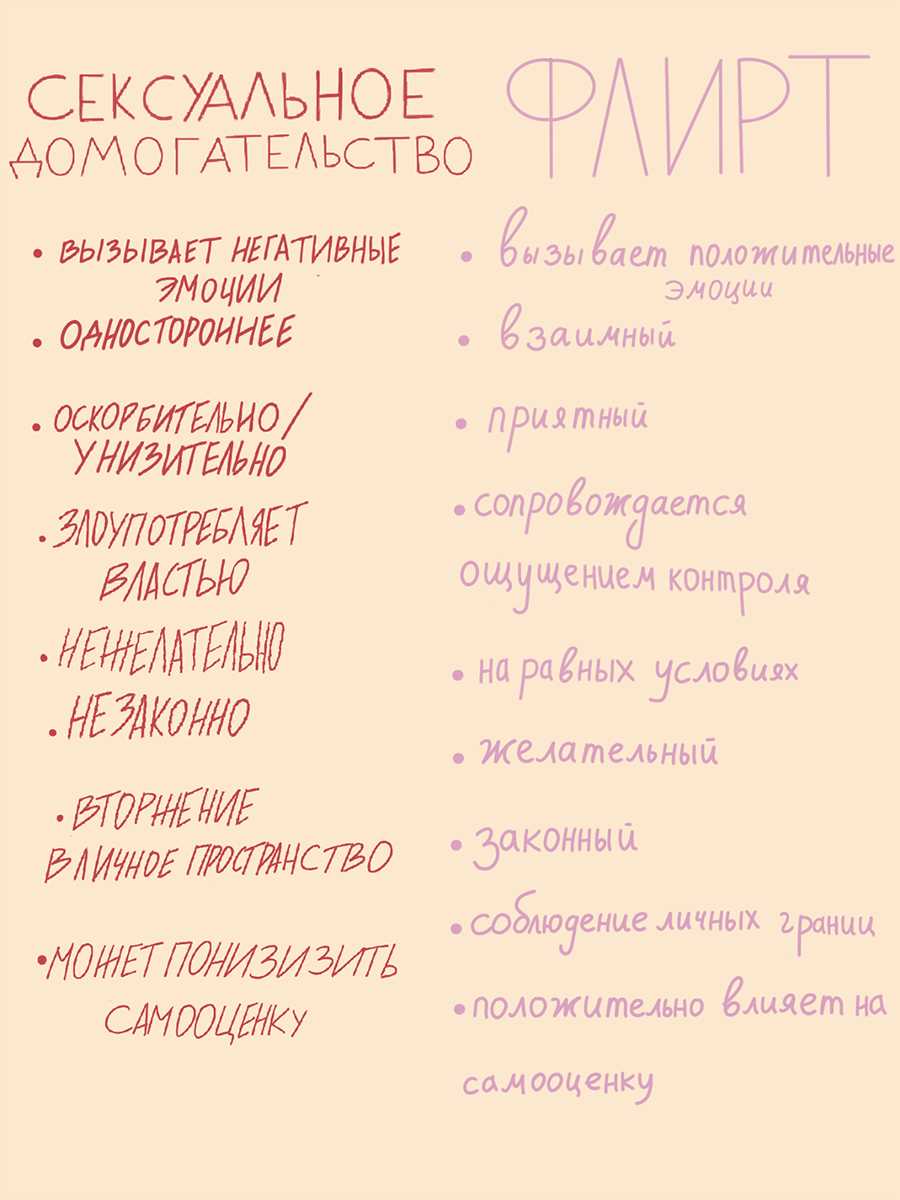 СЕКСУАЛЬНОЕ
ДОМОГАТЕЛЬСТВО
• ВЫЗЫВАЕТ НЕГАТИВНЫЕ
ЭМОЦИИ
• ОДНОСТОРОННЕЕ
• ОСКОРБИТЕЛЬНО/
УНИЗИТЕЛЬНО
• ЗЛОУПОТРЕБЛЯЕТ
ВЛАСТЬЮ
• НЕЖЕЛАТЕЛЬНО
• НЕЗАКОННО
• ВТОРЖЕНИЕ
В ЛИЧНОЕ ПРОСТРАНСТВО
• МОЖЕТ ПОНИЗИЗИТЬ
САМООЦЕНКУ
ФЛИРТ
• вызывает положительные
эмоции
• взаимный
• приятный
• сопровождается
ощущением контроля
• на равных условиях
• желательный
• законный
• соблюдение личных границ
• положительно влияет на
самооценку